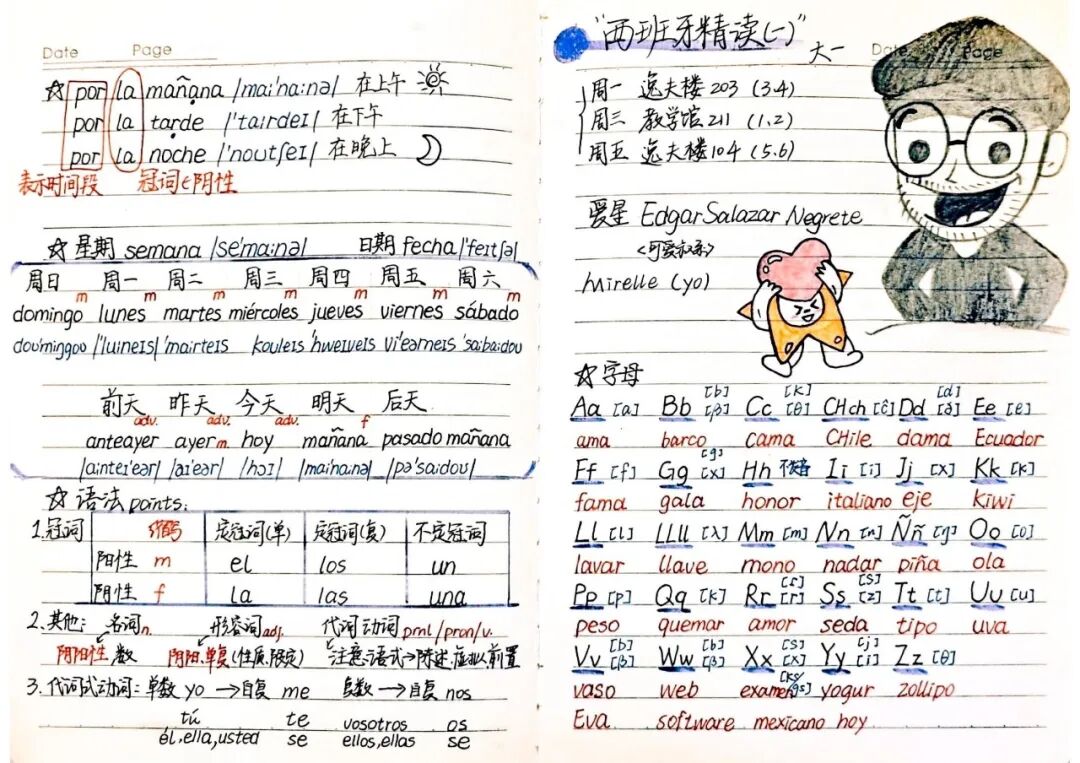 Date Page
☆ por la mañana /mai'na:nə/ 在上午
por la tarde /'tairdeɪ/ 在下午
por la noche /'noʊtʃeɪ/ 在晚上
表示时间段 冠词∈阴性
☆ 星期 semana /se'ma:nə/ 日期 fecha /'feɪtʃə/
周日 周一 周二 周三 周四 周五 周六
m m m m m m
domingo lunes martes miércoles jueves viernes sábado
doʊ'mingoʊ /'luineɪs/ 'mairteɪs koʊleɪs 'hweɪveɪs vi'eərneɪs 'sai:baidoʊ
前天 昨天 今天 明天 后天
adv. adv. adv. f
anteayer ayer m hoy mañana pasado mañana
/ainteɪ'eər/ /ai'eər/ /hɔɪ/ /mai'naɪnə/ /pə'saidoʊ/
☆ 语法 points:
1.冠词 缩写 定冠词(单) 定冠词(复) 不定冠词
阳性 m el los un
阴性 f la las una
2.其他: 名词n. 形容词adj. 代词动词 pml/pron/v.
阴阳性,数 阴阳,单复(性质.限定) 注意:语式→陈述.虚拟.前置
3.代词式动词:单数 yo → 自复 me 复数 → 自复 nos
tú te vosotros os
él,ella,usted se ellos,ellas se
"西班牙精读(一)" 大一 Date Page
周一 逸夫楼 203 (3.4)
周三 教学馆 211 (1.2)
周五 逸夫楼 104 (5.6)
爱星 Edgar Salazar Negrete
<可爱叔系>
Mirelle (yo)
☆ 字母
Aa [a] Bb [b] [β] Cc [K] [θ] CHch [ĉ] Dd [d] [ð] Ee [e]
ama barco cama CHile dama Ecuador
Ff [f] Gg [g] [x] Hh 不发音 Ii [i] Jj [x] Kk [k]
fama gala honor italiano eje kiwi
Ll [l] LLll [λ] Mm [m] Nn [n] Ññ [ŋ] Oo [o]
lavar llave mono nadar piña ola
Pp [p] Qq [k] Rr [r] [r̄] Ss [s] [z] Tt [t] Uu [u]
peso quemar amor seda tipo uva
Vv [b] [β] Ww [b] [β] Xx [s] [x] [ks/gs] Yy [j] [i] Zz [θ]
vaso web examen yogur zollipo
Eva software mexicano hoy